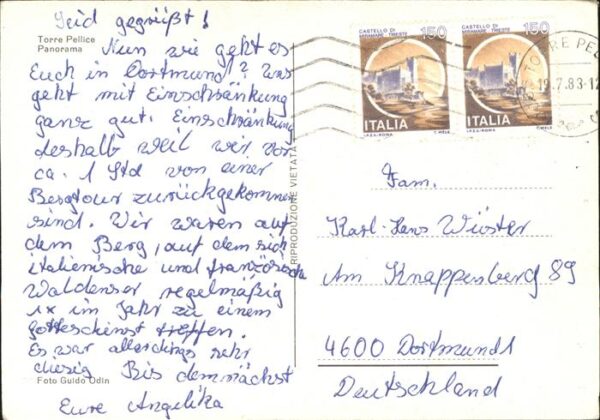 Seid gegrüßt!
Torre Pellice
Panorama
Nun wie geht es
Euch in Dortmund? Uns
geht mit Einschränkung
ganz gut. Einschränkung
deshalb weil wir vor
ca. 1 Std von einer
Bergtour zurückgekommen
sind. Wir waren auf
dem Berg, auf dem sich
italienische und französische
Waldenser regelmäßig
1x im Jahr zu einem
Gottesdienst treffen.
Es war allerdings sehr
diesig Bis demnächst
Foto Guido Odin
Eure Angelika
RIPRODUZIONE VIETATA
CASTELLO DI MIRAMARE TRIESTE 150
ITALIA
I.P.Z.S. ROMA
CASTELLO DI MIRAMARE TRIESTE 150
ITALIA
I.P.Z.S. ROMA
TORRE PEL
19.7.83-12
Fam.
Karl-Hans Wüster
Am Knappenberg 89
4600 Dortmund 1
Deutschland